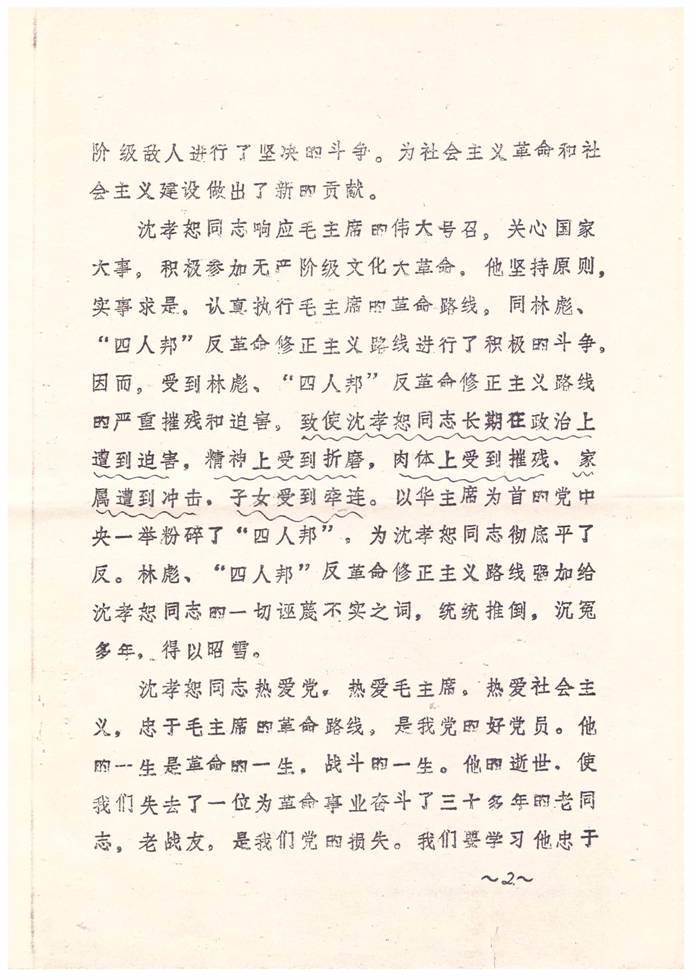 阶级敌人进行了坚决的斗争。为社会主义革命和社
会主义建设做出了新的贡献。
沈孝恕同志响应毛主席的伟大号召，关心国家
大事，积极参加无产阶级文化大革命，他坚持原则，
实事求是，认真执行毛主席的革命路线，同林彪、
“四人邦”反革命修正主义路线进行了积极的斗争，
因而，受到林彪、“四人邦”反革命修正主义路线
的严重摧残和迫害，致使沈孝恕同志长期在政治上
遭到迫害，精神上受到折磨，肉体上受到摧残、家
属遭到冲击，子女受到牵连。以华主席为首的党中
央一举粉碎了“四人邦”，为沈孝恕同志彻底平了
反。林彪、“四人邦”反革命修正主义路线强加给
沈孝恕同志的一切诬蔑不实之词，统统推倒，沉冤
多年，得以昭雪。
沈孝恕同志热爱党，热爱毛主席，热爱社会主
义，忠于毛主席的革命路线，是我党的好党员。他
的一生是革命的一生，战斗的一生。他的逝世、使
我们失去了一位为革命事业奋斗了三十多年的老同
志，老战友，是我们党的损失。我们要学习他忠于
～2～